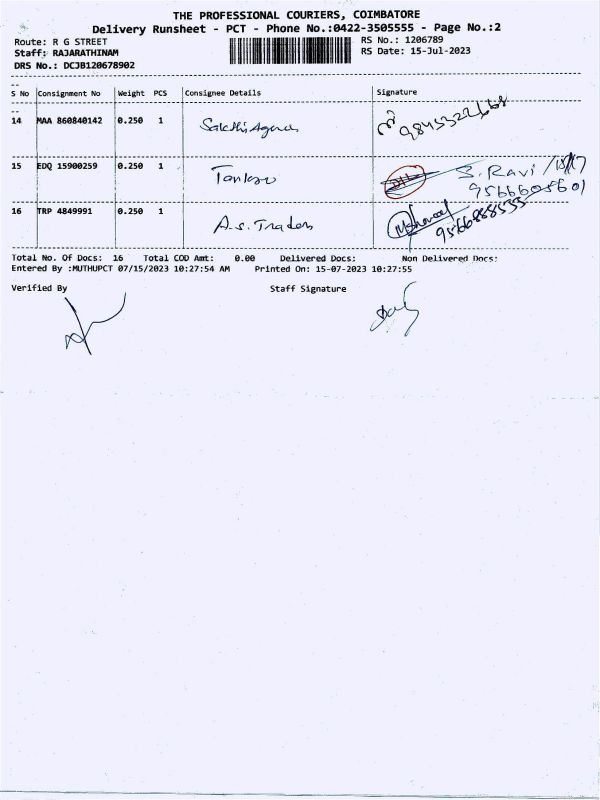 THE PROFESSIONAL COURIERS, COIMBATORE
Delivery Runsheet - PCT - Phone No.:0422-3505555 - Page No.:2
Route: R G STREET
RS No.: 1206789
Staff: RAJARATHINAM
RS Date: 15-Jul-2023
DRS No.: DCJB120678902
S No Consignment No Weight PCS Consignee Details Signature
14 MAA 860840142 0.250 1 Sakthi Agencies
15 EDQ 15900259 0.250 1 S. Ravi
9566605601
16 TRP 4849991 0.250 1 A.S. Traders 9566888533
Total No. Of Docs: 16 Total COD Amt: 0.00 Delivered Docs: Non Delivered Docs:
Entered By :MUTHUPCT 07/15/2023 10:27:54 AM Printed On: 15-07-2023 10:27:55
Verified By Staff Signature